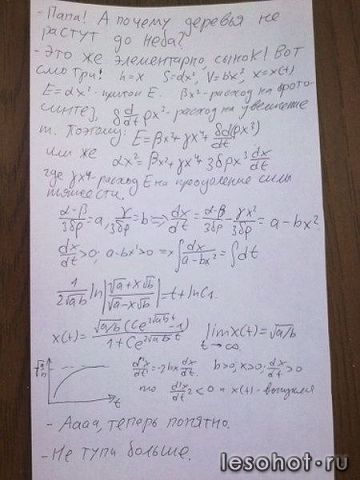 - Папа! А почему деревья не
растут до неба?
- Это же элементарно, сынок! Вот
смотри! h=x S=αx², V=bx³, x=x(t)
E=αx²-приток E. βx²-расход на фото-
синтез, δ d/dt ρx³-расход на увеличение
m. Поэтому: E=βx²+γx⁴+ δd(ρx³)/dt
или же αx²=βx²+γx⁴+3δρx² dx/dt
где γx⁴-расход E на преодоление силы
тяжести.
(α-β)/3δρ=a, γ/3δρ=b => dx/dt = (α-β)/3δρ - γx²/3δρ = a-bx²
dx/dt>0; a-bx²>0 => ∫ dx/(a-bx²) = ∫dt
1/(2√ab) ln|(√a+x√b)/(√a-x√b)| = t+lnC₁.
x(t)= √a/b (Ce^(2√ab t)-1)/(1+Ce^(2√ab t)) lim x(t)=√a/b t→∞
√a/b d²x/dt²=-2bx dx/dt. b>0, x>0; dx/dt>0
t то d²x/dt²<0 и x(t)-выпукл
- Аааа, теперь понятно.
- Не тупи больше.
lesohot.ru